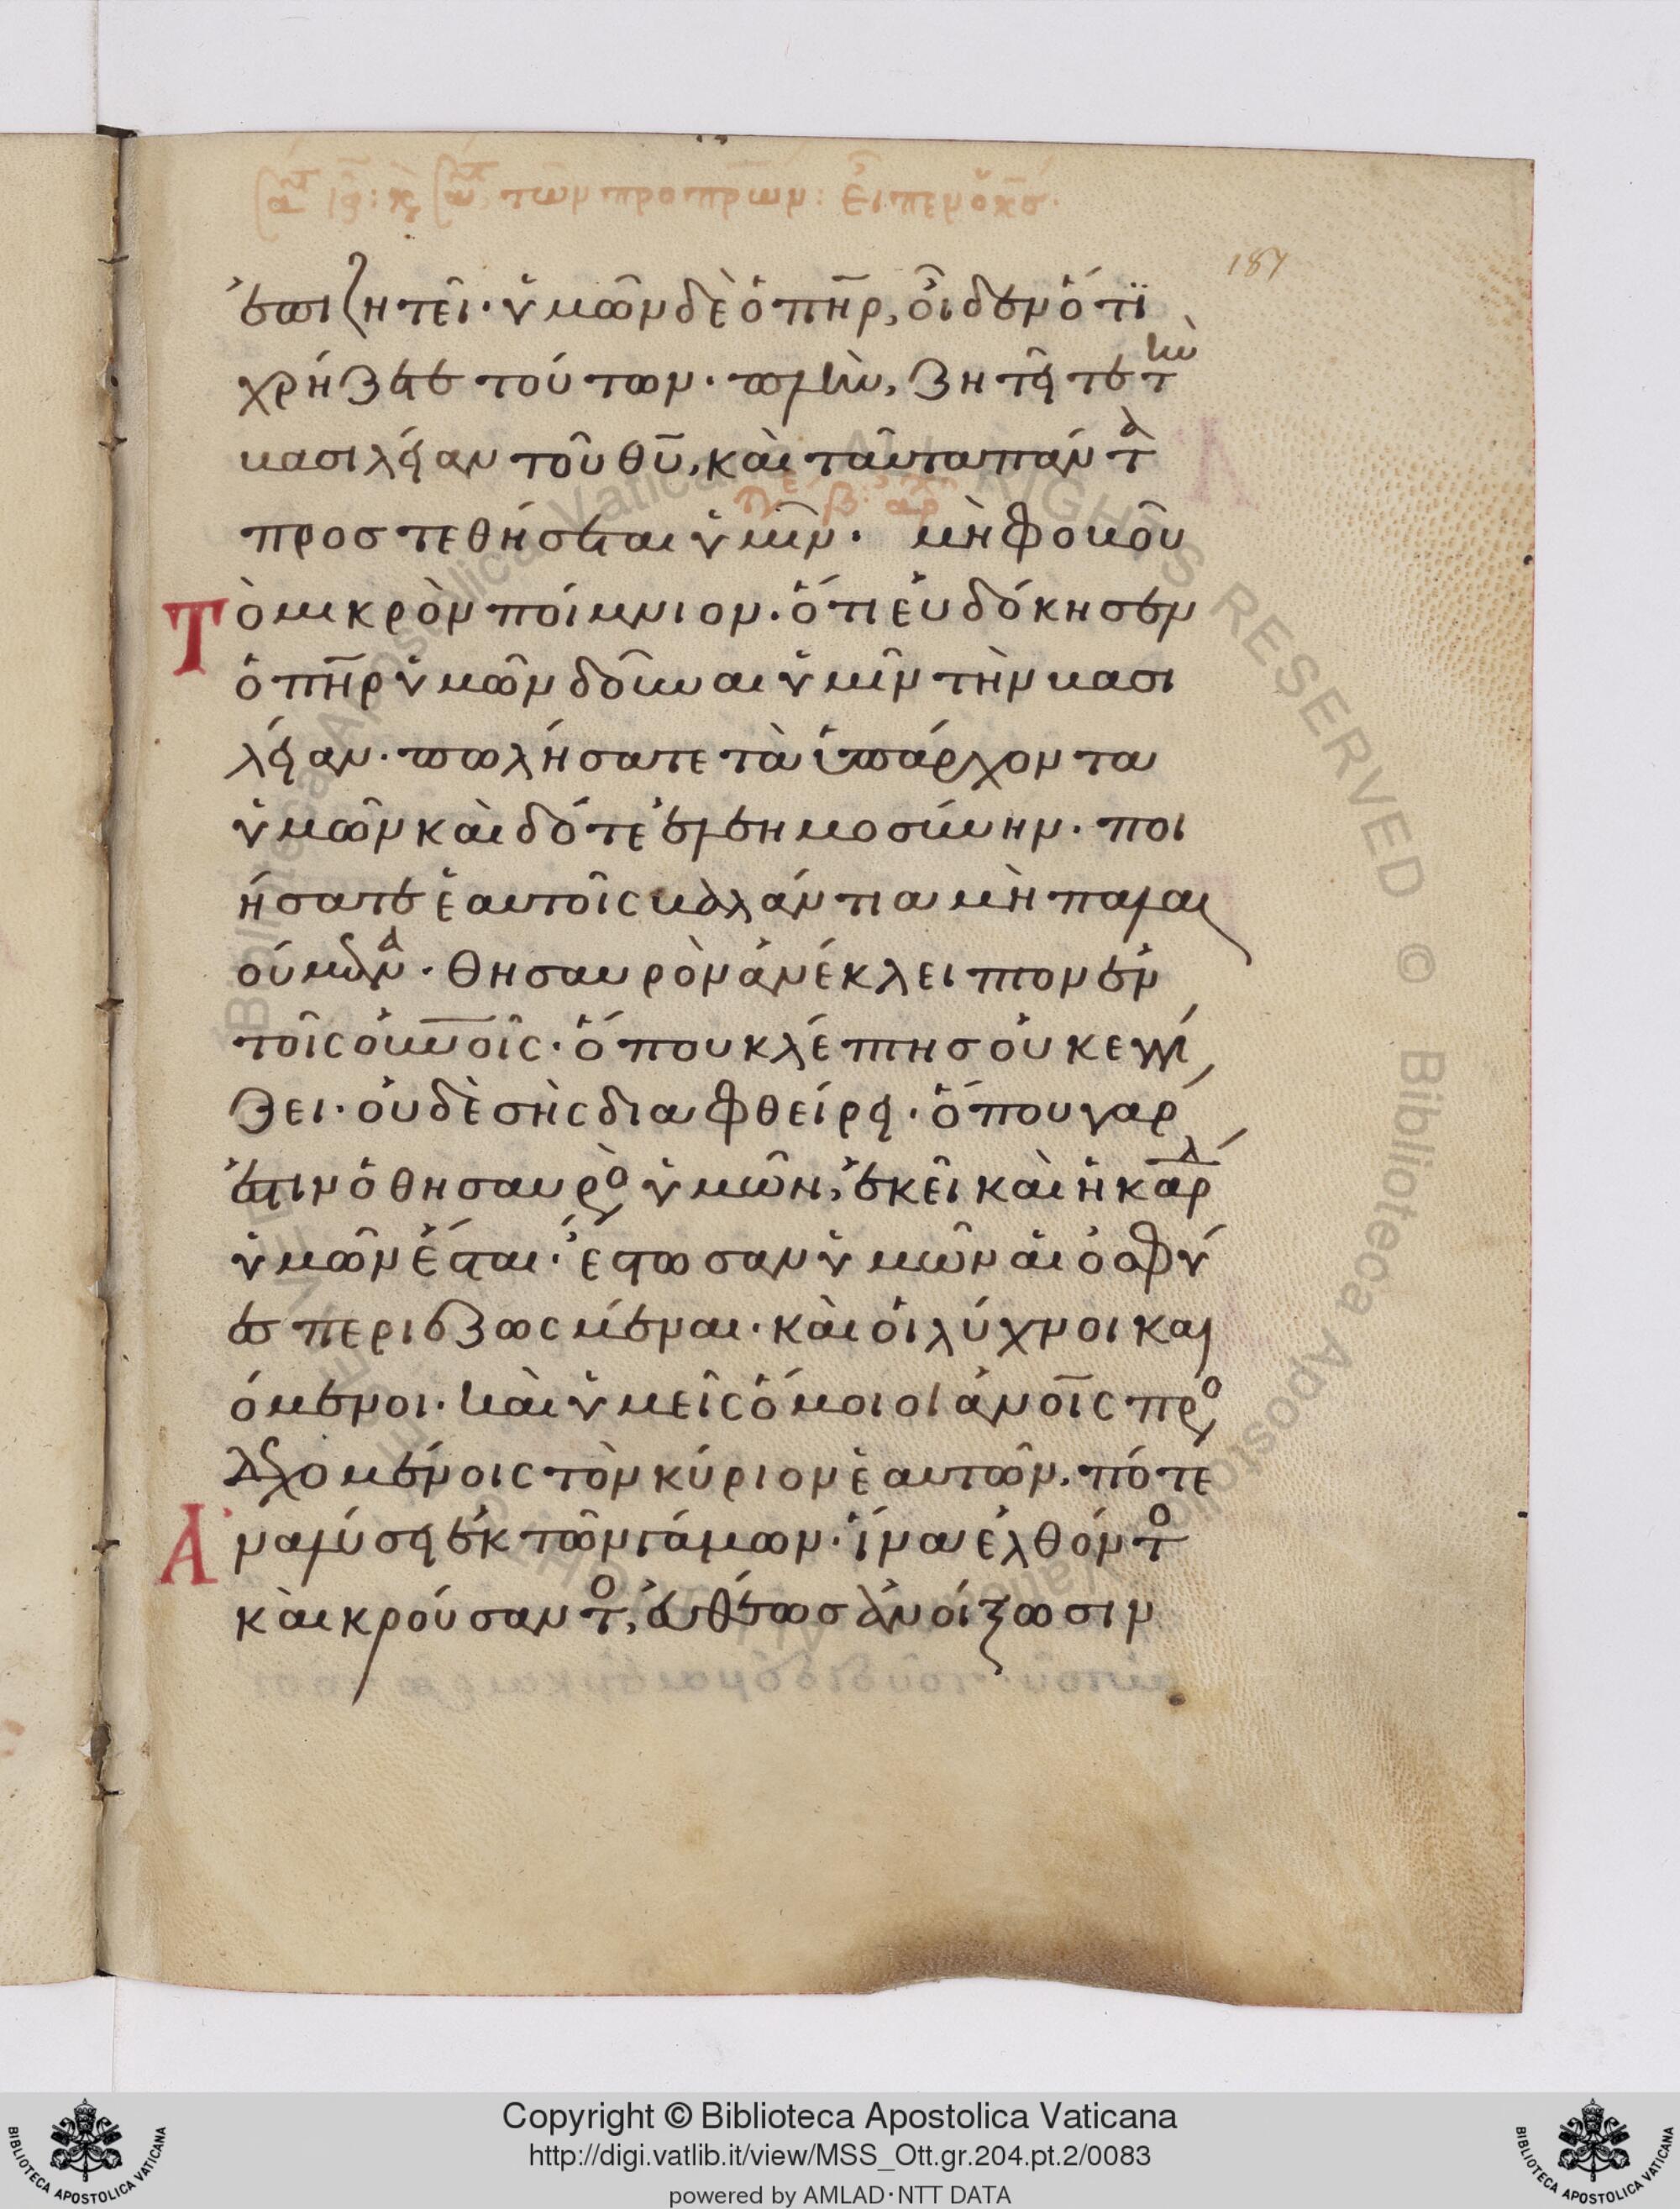 ἐπιζητεῖ· ὑμῶν δὲ ὁ πη̅ρ, οἶδεν ὅτϊ
χρήζετε τούτων· πλὴν, ζητεῖτε τὴν
βασιλείαν τοῦ θυ̅, καὶ ταῦτα πάντα
προστεθήσεται ὑμῖν· μὴ φοβοῦ
Τὸ μικρὸν ποίμνιον· ὅτι εὐδόκησεν
ὁ πη̅ρ ὑμῶν δοῦναι ὑμῖν τὴν βασι
λείαν· πωλήσατε τὰ ὑπάρχοντα
ὑμῶν καὶ δότε ἐλεημοσύνην· ποι
ήσατε ἑαυτοῖς βαλάντια μὴ παλαι
ούμενα· θησαυρὸν ἀνέκλειπτον ἐν
τοῖς οὐνοῖς· ὅπου κλέπτης οὐκ ἐγγί
ζει· οὐδὲ σὴς διαφθείρει· ὅπου γαρ
ἐστιν ὁ θησαυρὸς ὑμῶν, ἐκεῖ καὶ ἡ καρδ
ὑμῶν ἔσται· ἔστωσαν ὑμῶν αἱ ὀσφύ
ες περιεζωσμέναι· καὶ οἱ λύχνοι και
όμενοι· καὶ ὑμεῖς ὅμοιοι ἀνοῖς προσ
δεχομένοις τὸν κύριον ἑαυτῶν, πότε
Ἀναλύσει ἐκ τῶν γάμων· ἵνα ἐλθόντο
καὶ κρούσαντο, εὐθέως ἀνοίξωσιν
187
Copyright © Biblioteca Apostolica Vaticana
http://digi.vatlib.it/view/MSS_Ott.gr.204.pt.2/0083
powered by AMLAD·NTT DATA